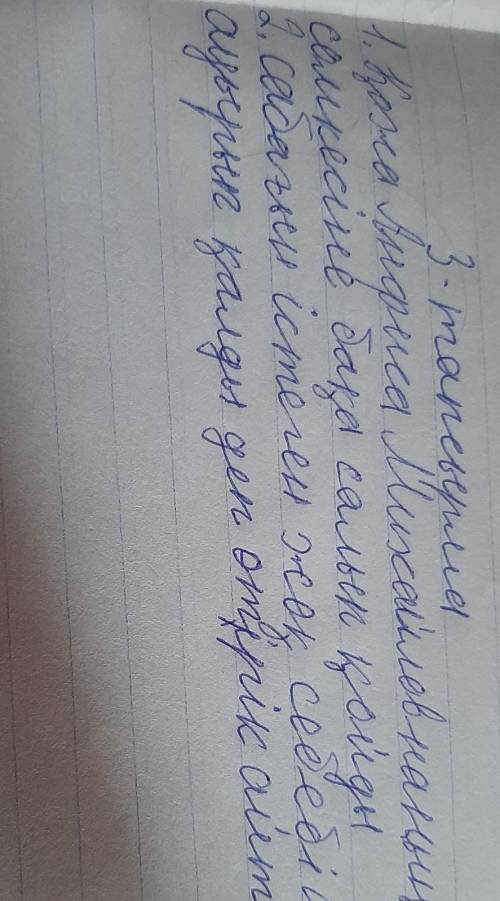 3-тапсырма
1. Қожа Анфиса Михайловнаның
сөмкесіне бақа салып қойды
2. сабағын істеген жоқ себебі
ауырып қалды деп өтірік айт